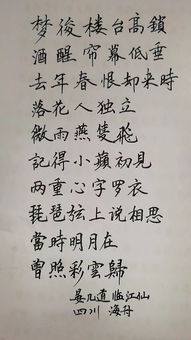 梦後楼台高鎖
酒醒帘幕低垂
去年春恨却来時
落花人独立
微雨燕隻飛
記得小蘋初見
两重心字罗衣
琵琶弦上说相思
當時明月在
曾照彩雲歸
晏几道临江仙
四川 海舟